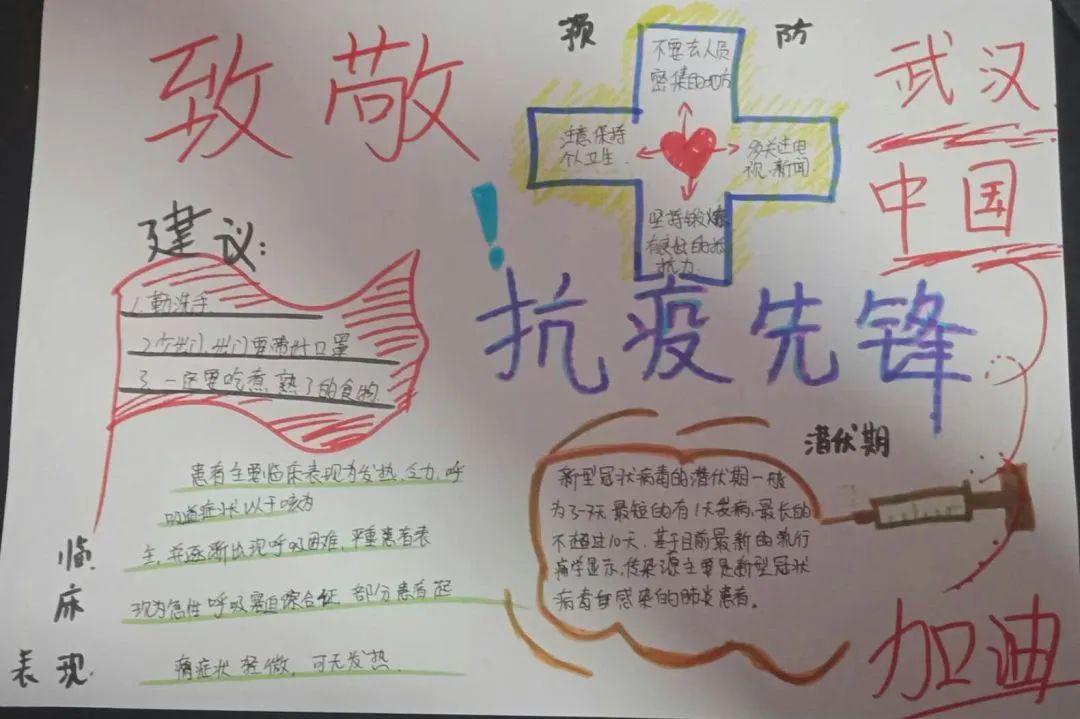 致敬
预 防
武汉
中国
不要去人员
密集的地方
注意保持
个人卫生.
多关注电
视.新闻.
坚持锻炼
有良好的抵
抗力
!
建议:
1.勤洗手
2.少出门,出门要带好口罩
3.一定要吃煮熟了的食物.
抗疫先锋
潜伏期
新型冠状病毒的潜伏期一般
为3-7天 最短的有1天发病,最长的
不超过10天,基于目前最新的流行
病学显示,传染源主要是新型冠状
病毒自感染的肺炎患者。
临床表现
患者主要临床表现为发热,乏力,呼
吸道症状以干咳为
主,并逐渐出现呼吸困难,严重患者表
现为急性呼吸窘迫综合征 部分患者起
病症状轻微,可无发热.
加油